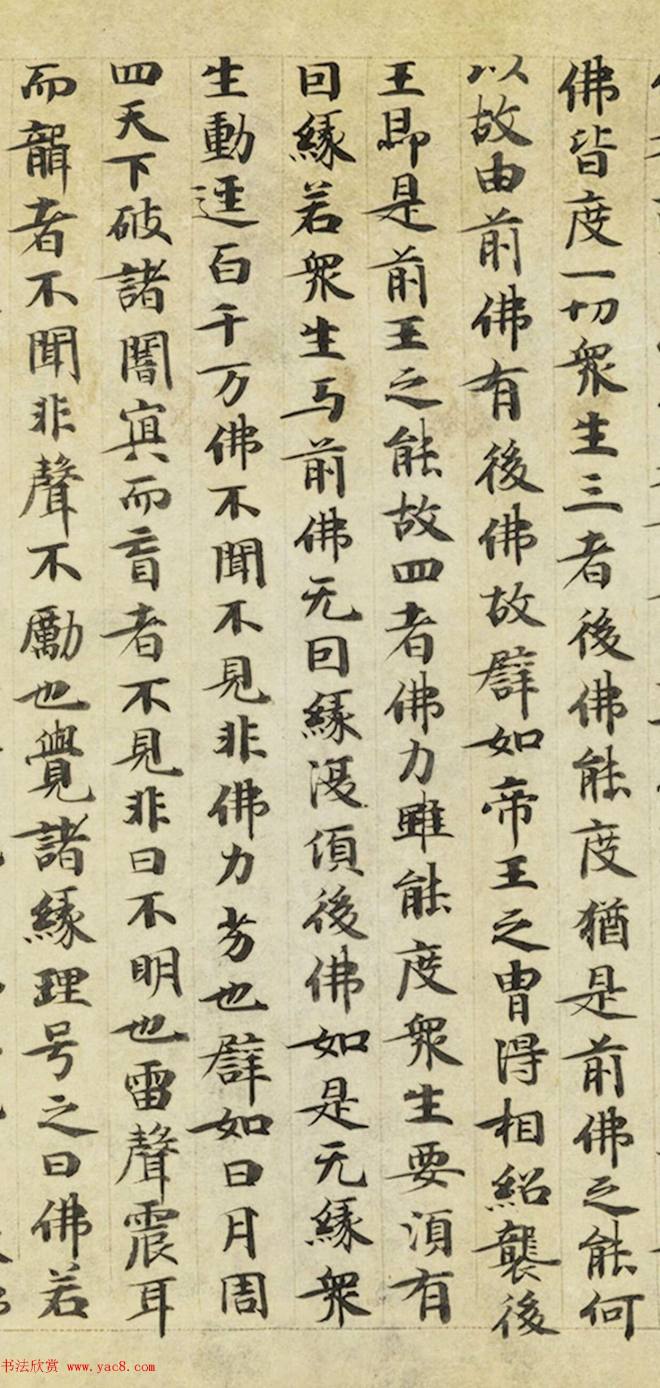 佛皆度一切衆生三者後佛能度猶是前佛之能何
以故由前佛有後佛故辟如帝王之胄得相紹襲後
王即是前王之能故四者佛力雖能度衆生要須有
因緣若衆生与前佛无因緣復須後佛如是无緣衆
生動逕百千万佛不聞不見非佛力劣也辟如日月周
四天下破諸闇冥而盲者不見非日不明也雷聲震耳
而聾者不聞非聲不勵也覺諸緣理号之曰佛若
书法欣赏 www.yac8.com